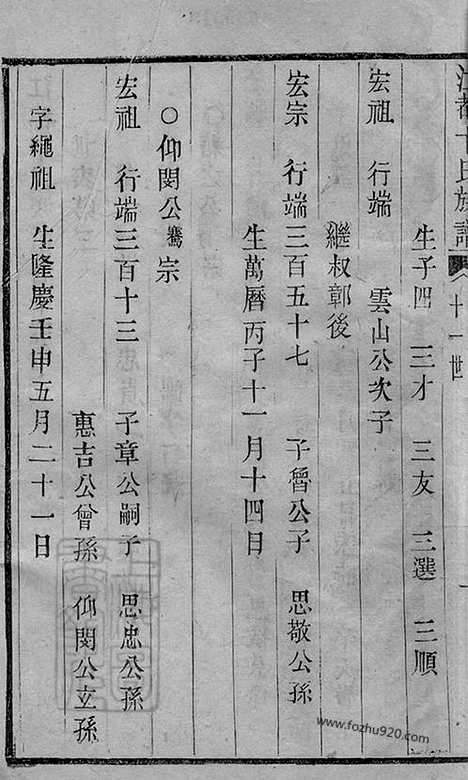 江都卞氏族譜 十一世
生子四 三才 三友 三選 三順
宏祖 行端 雲山公次子
繼叔鄣後
宏宗 行端三百五十七 子魯公子 思敬公孫
生萬曆丙子十一月十四日
○仰閔公騫宗
宏祖 行端三百十三 子章公嗣子 思忠公孫
惠吉公曾孫 仰閔公玄孫
字繩祖 生隆慶壬申五月二十一日
www.fozhu920.com